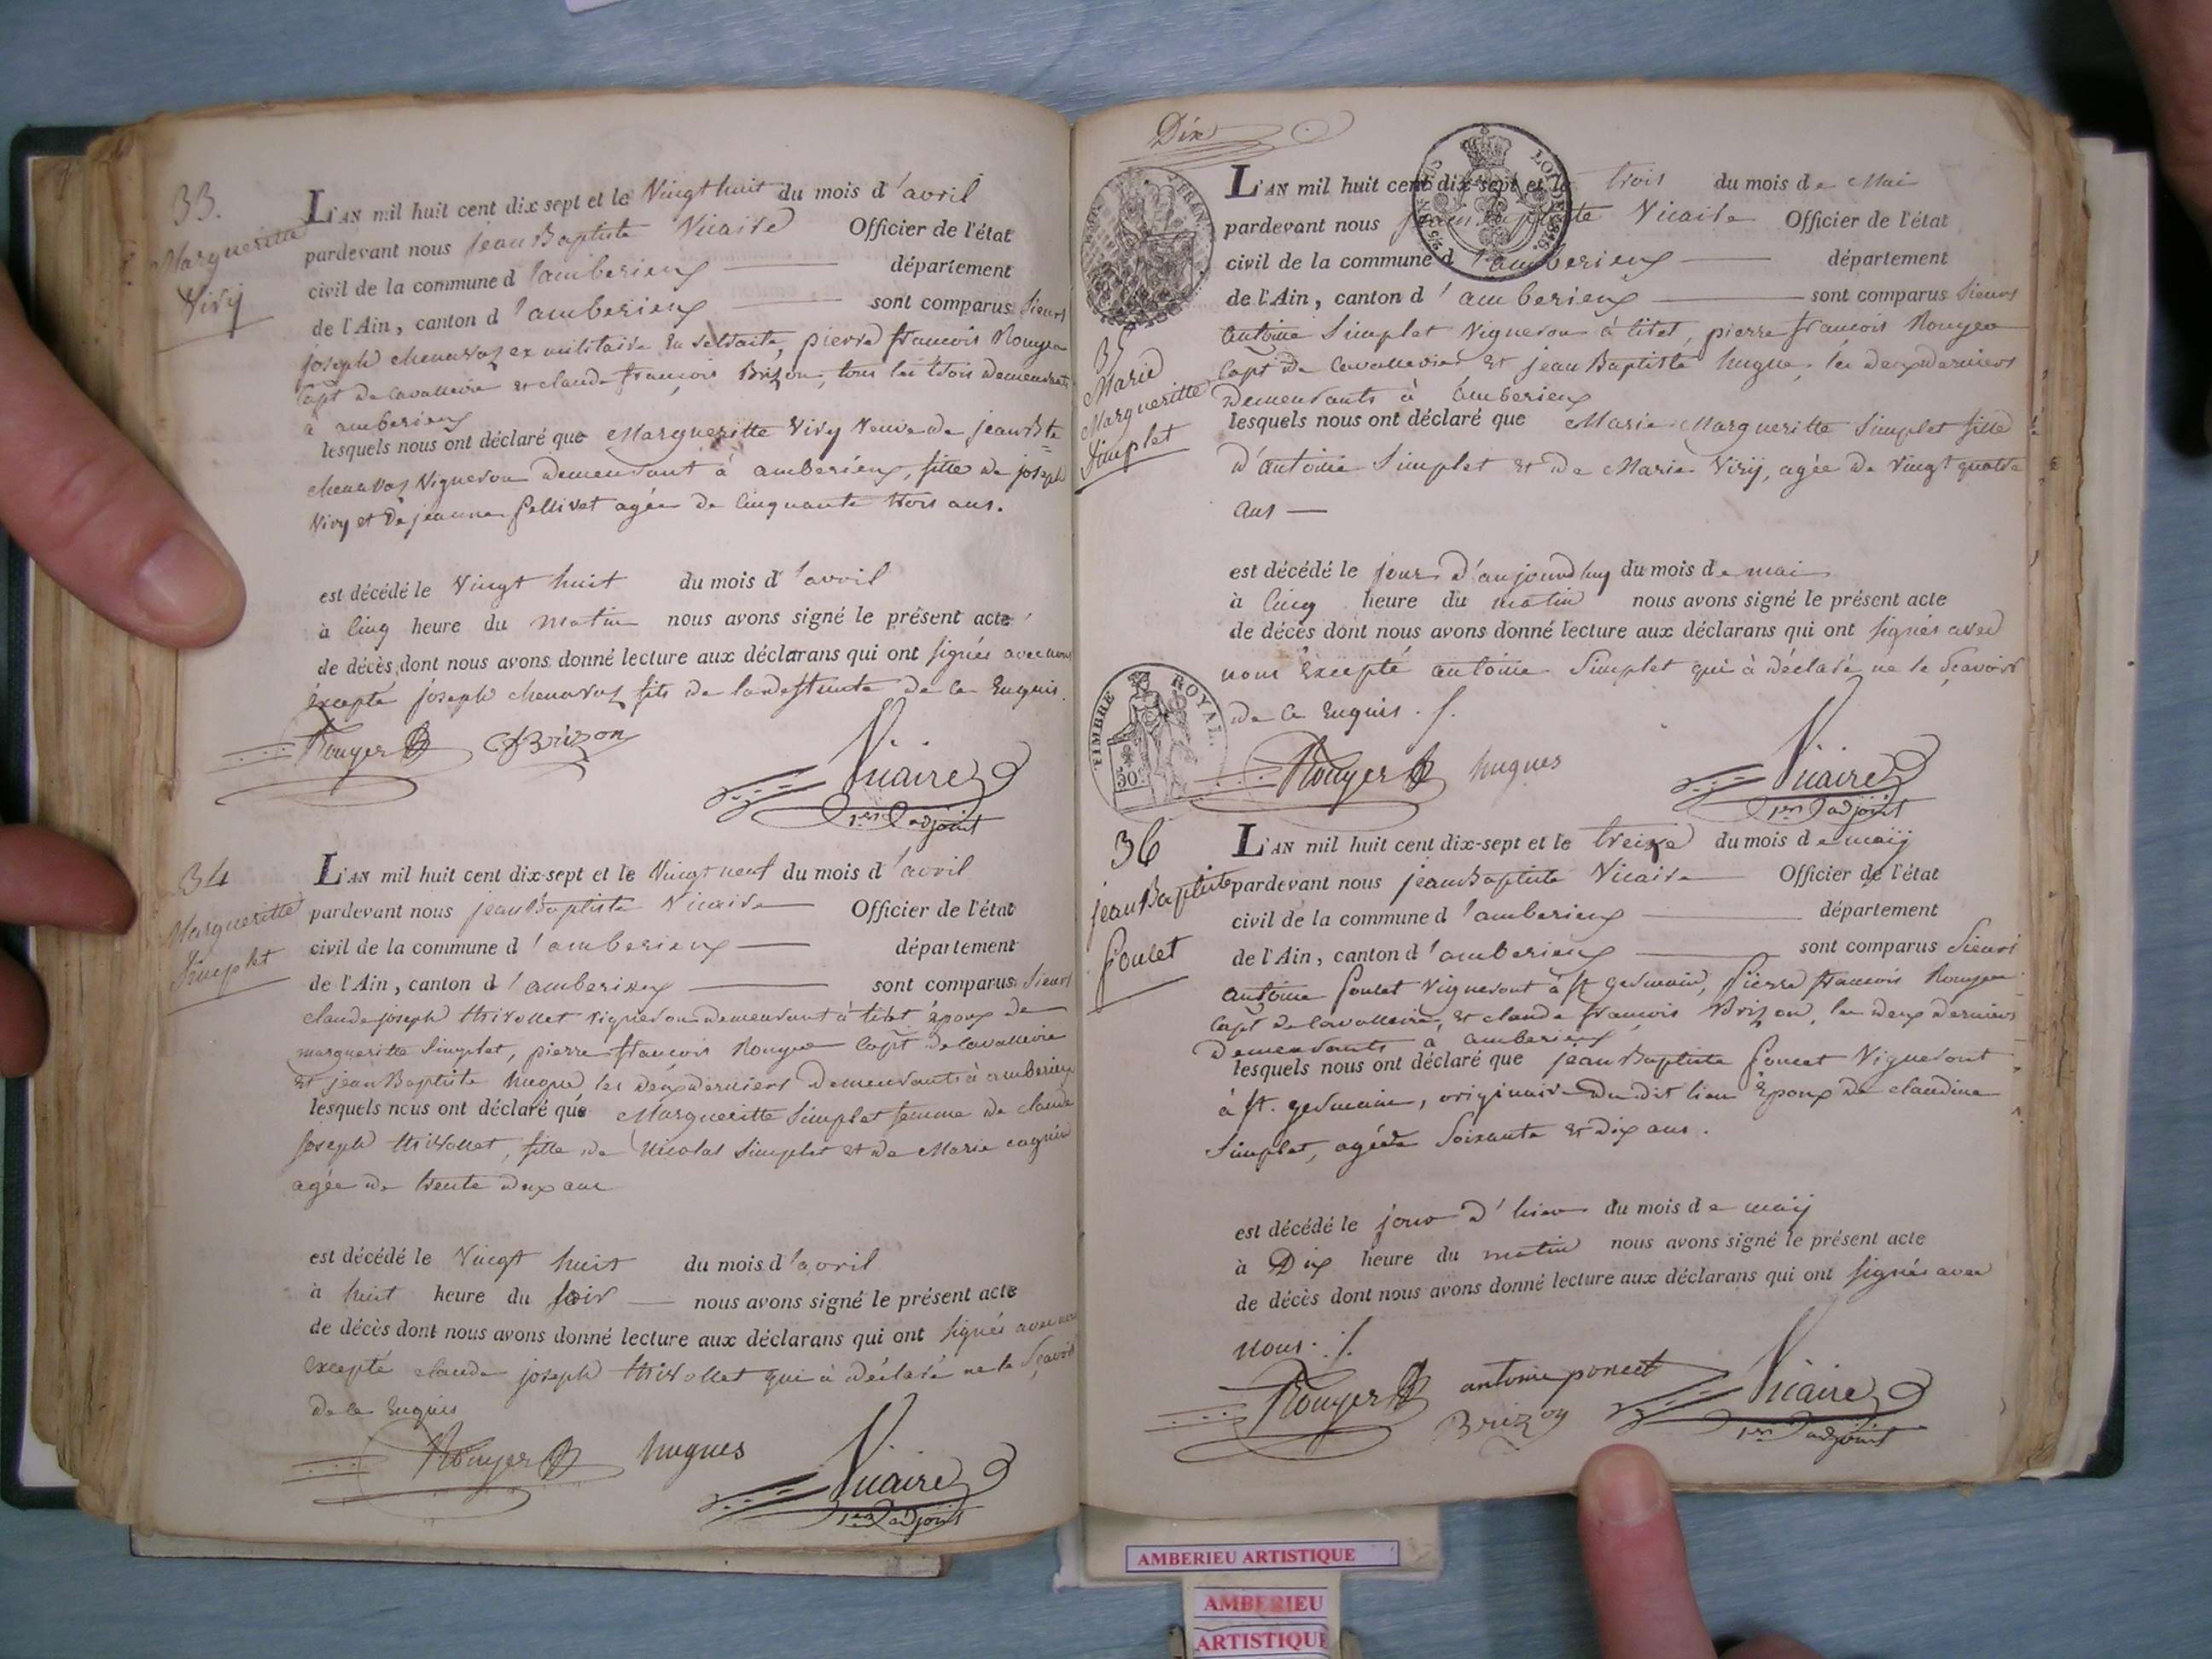 33.
Margueritte
Vivy
L'AN mil huit cent dix sept et le Vingt huit du mois d'avril
pardevant nous jean Baptiste Vicaire Officier de l'état
civil de la commune d'amberieux département
de l'Ain, canton d'amberieux sont comparus Sieurs
joseph chenavaz ex militaire en retraite, pierre francois Rouyer
Capt de Cavallerie et claude françois Brizon, tous les trois demeurants
à amberieux
lesquels nous ont déclaré que Margueritte Vivy Veuve de jean Bte
chenavaz Vigneron demeurant à amberieux, fille de joseph
Vivy et de jeanne pellivet agée de Cinquante trois ans.
est décédé le Vingt huit du mois d'avril
à Cinq heure du matin nous avons signé le présent acte
de décès dont nous avons donné lecture aux déclarans qui ont signés avec nous
Excepté joseph chenavaz fils de la deffunte de ce Enquis.
Rouyer CfBrizon
Vicaire
1er adjoint
34
Margueritte
Simplet
L'AN mil huit cent dix-sept et le Vingt neuf du mois d'avril
pardevant nous jean Baptiste Vicaire Officier de l'état
civil de la commune d'amberieux département
de l'Ain, canton d'amberieux sont comparus Sieurs
claude joseph thivollet vigneron demeurant à tiret Epoux de
margueritte Simplet, pierre françois Rouyer Capt de Cavallerie
et jean Baptiste hugue les deux derniers demeurants à amberieux
lesquels nous ont déclaré que Margueritte Simplet femme de claude
joseph thivollet, fille de Nicolas Simplet et de Marie cagnin
agée de trente deux ans
est décédé le Vingt huit du mois d'avril
à huit heure du soir nous avons signé le présent acte
de décès dont nous avons donné lecture aux déclarans qui ont signés avec nous
Excepté claude joseph thivollet qui à déclaré ne le Sçavoir
de ce Enquis
Rouyer hugues
Vicaire
1er adjoint
Dix
35
Marie
Margueritte
Simplet
L'AN mil huit cent dix-sept et le trois du mois de Mai
pardevant nous jean Baptiste Vicaire Officier de l'état
civil de la commune d'amberieux département
de l'Ain, canton d'amberieux sont comparus Sieurs
antoine Simplet Vigneron à titet, pierre francois Rouyer
Capt de Cavallerie et jean Baptiste hugue, les deux derniers
demeurants à amberieux
lesquels nous ont déclaré que Marie Margueritte Simplet fille
d'antoine Simplet et de Marie Vivy, agée de vingt quatre
ans
est décédé le jour d'aujourdhuy du mois de mai
à Cinq heure du matin nous avons signé le présent acte
de décès dont nous avons donné lecture aux déclarans qui ont signés avec
nous Excepté antoine Simplet qui à déclaré ne le Sçavoir
de ce Enquis.
TIMBRE ROYAL.
50
Rouyer hugues
Vicaire
1er adjoint
36
jean Baptiste
poncet
L'AN mil huit cent dix-sept et le treize du mois de maij
pardevant nous jean Baptiste Vicaire Officier de l'état
civil de la commune d'amberieux département
de l'Ain, canton d'amberieux sont comparus Sieurs
antoine poncet Vigneront à st germain, pierre francois Rouyer
Capt de Cavallerie, et claude francois Brizon, les deux derniers
demeurants à amberieux
lesquels nous ont déclaré que jean Baptiste poncet Vigneront
à st. germain, originaire du dit lieu Epoux de claudine
Simplet, agé de Soixante et dix ans.
est décédé le jour d'hier du mois de maij
à Dix heure du matin nous avons signé le présent acte
de décès dont nous avons donné lecture aux déclarans qui ont signés avec
nous.
Rouyer antoine poncet Vicaire
Brizon 1er adjoint
AMBERIEU ARTISTIQUE
AMBERIEU
ARTISTIQUE